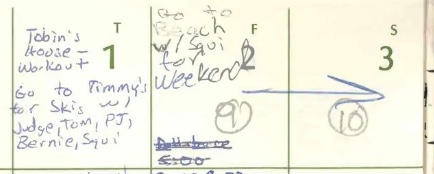 T
1
Tobin's
House -
Workout
Go to Timmy's
for Skis w/
Judge, Tom, PJ,
Bernie, Squi
F
2
Go to
Beach
w/ Squi
for
Weekend
9
5:00
S
3
10